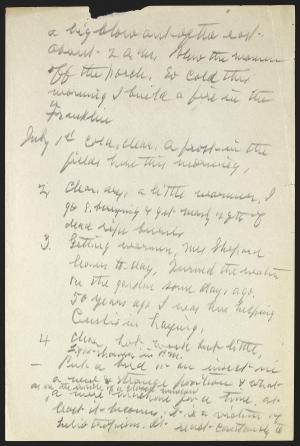 a big blow out of the east
about 2 A.M. blew the women
off the porch. So cold this
morning I build a fire in the
Franklin
July 1st Cold, clear, a frost in the
fields here this morning,
2. Clear, dry, a little warmer, I
go & get nearly 2 qts of
dead ripe berries
3. Getting warmer, Mrs Shepard
leaves to-day, Turned the water
on the garden some days ago,
50 years ago I was here helping
Curtis in haying,
4 Clear, hot, work but little,
light shower in P.M.
— Put a bird or an insect in
a new & strange position & what
a mere machine for a time, at
least it becomes; it is a victim of